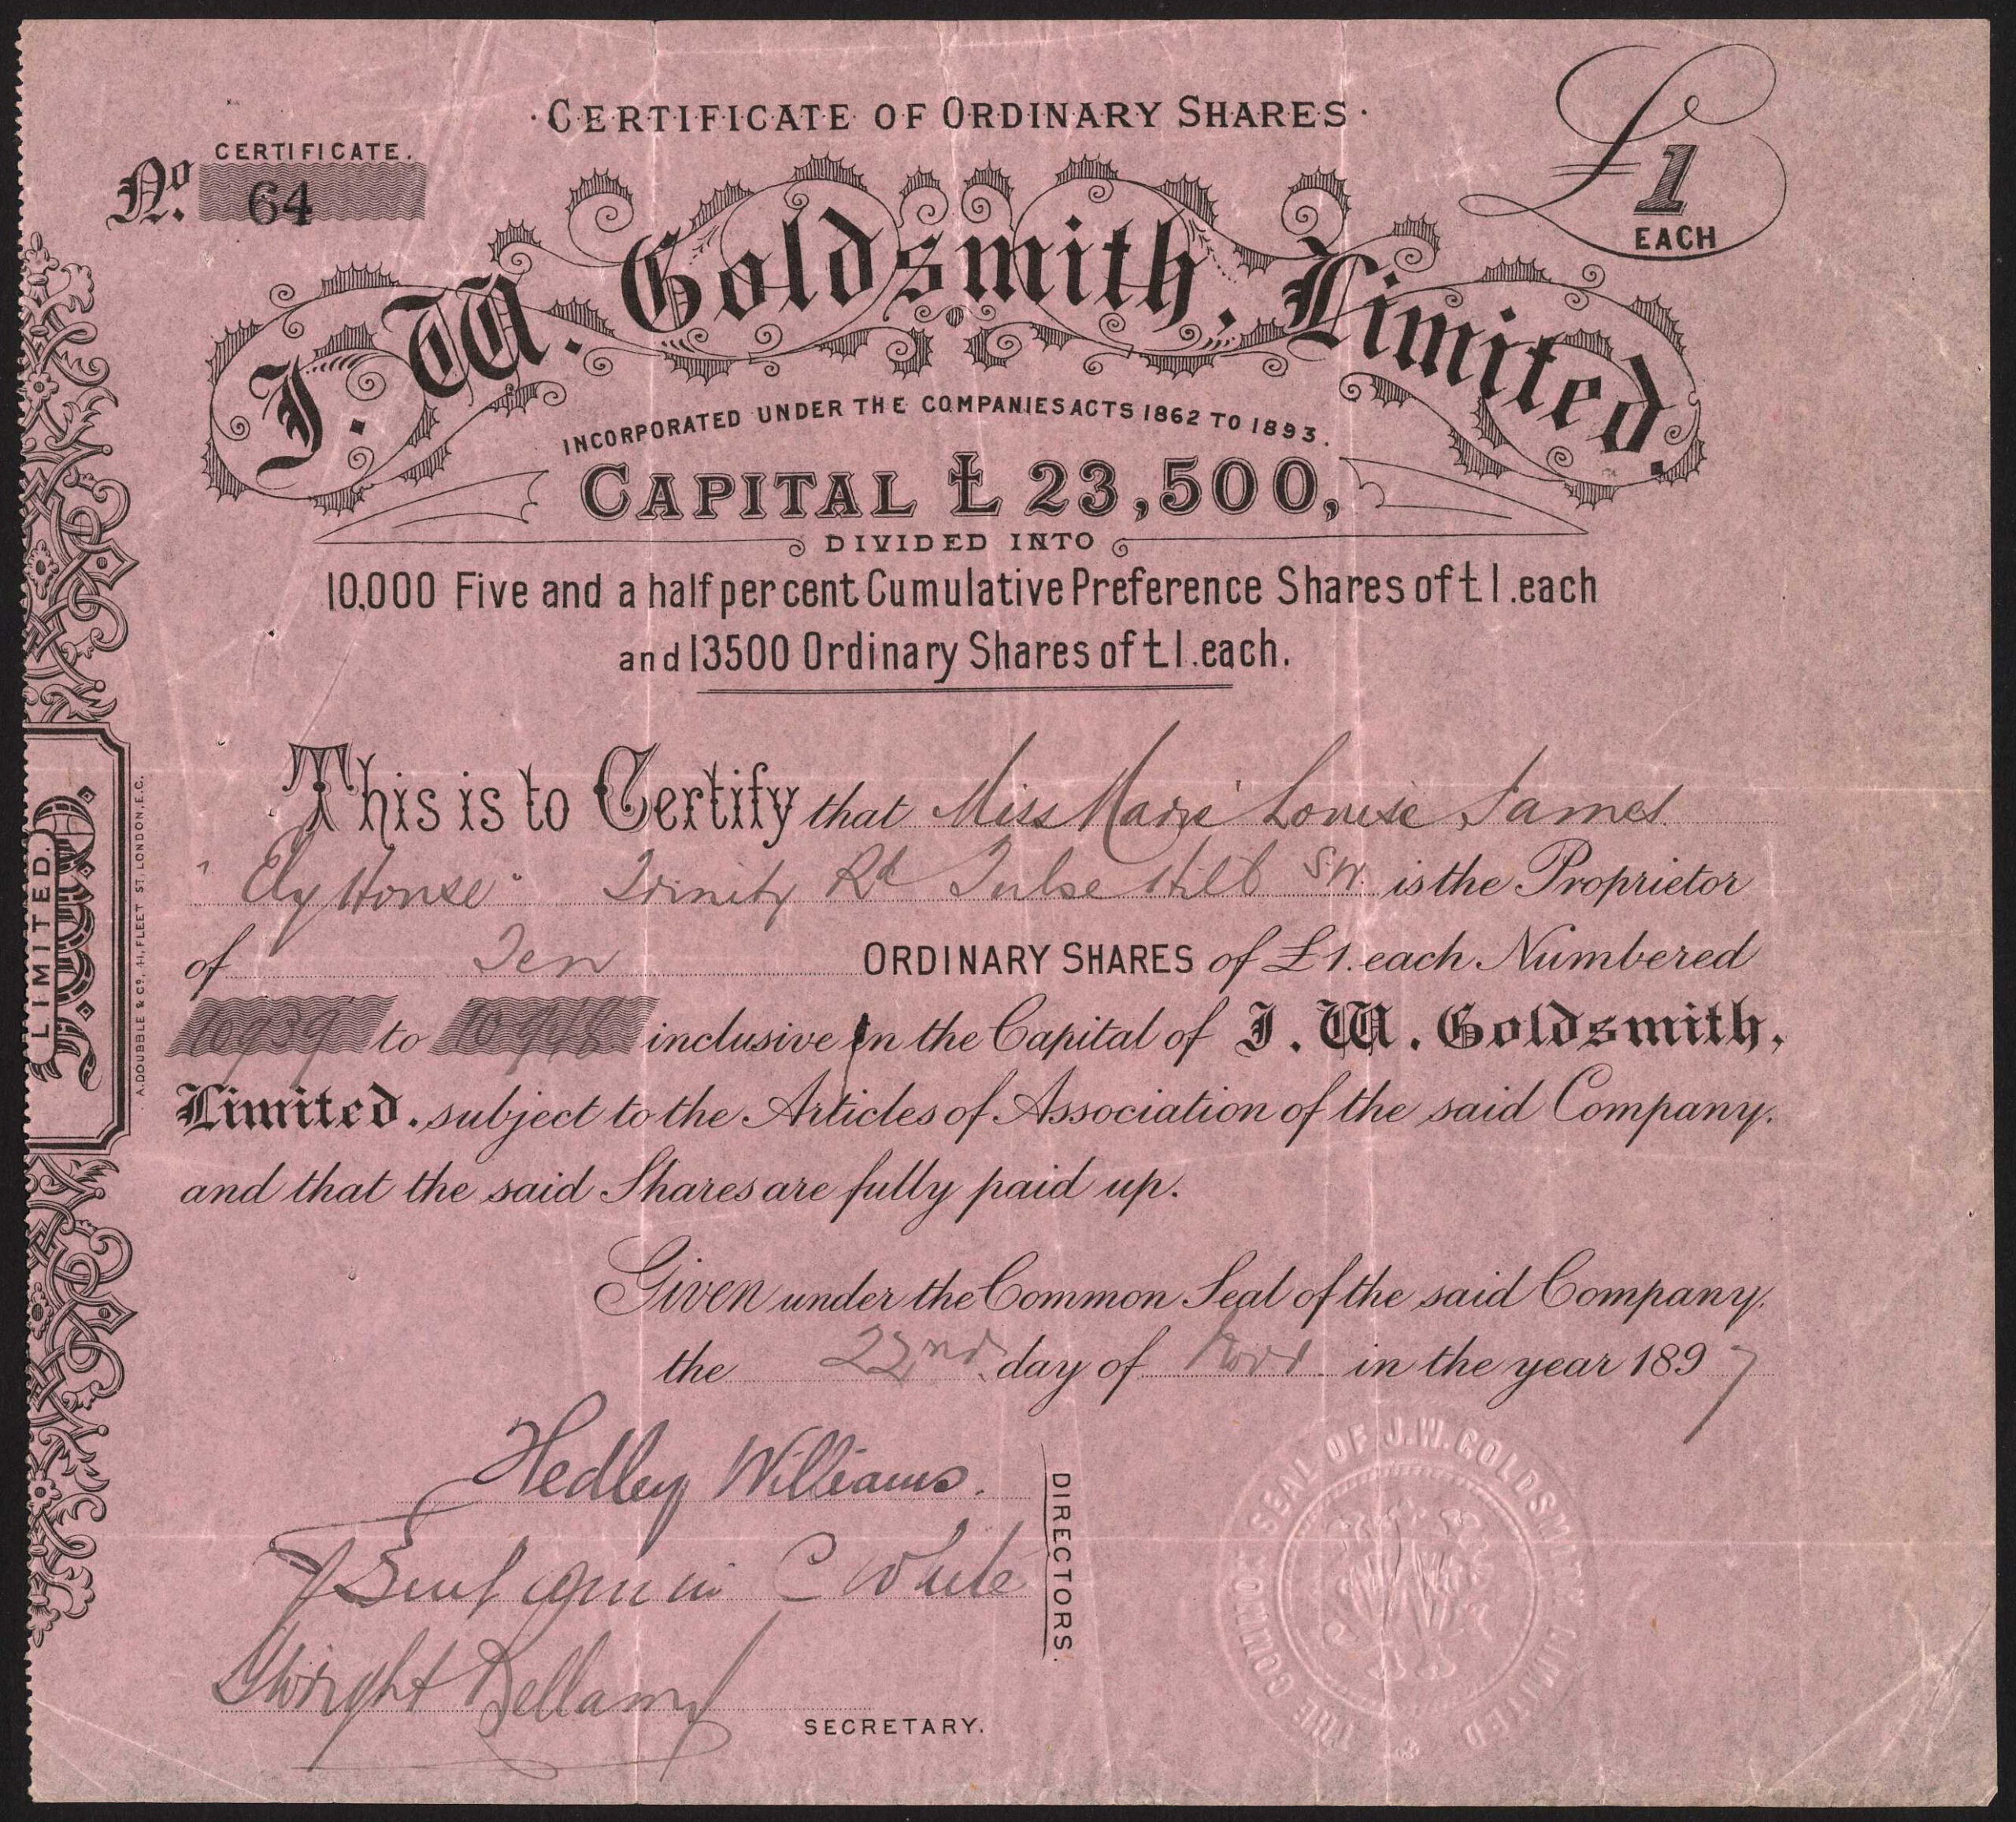 CERTIFICATE OF ORDINARY SHARES
CERTIFICATE.
No. 64
£1
EACH
J. W. Goldsmith, Limited.
INCORPORATED UNDER THE COMPANIES ACTS 1862 TO 1893.
CAPITAL £ 23,500,
DIVIDED INTO
10,000 Five and a half per cent Cumulative Preference Shares of £1. each
and 13500 Ordinary Shares of £1. each.
This is to Certify that Miss Marie Louise James
"Ely House" Trinity Rd Tulse Hill S.W. is the Proprietor
of Ten ORDINARY SHARES of £1. each Numbered
10939 to 10948 inclusive in the Capital of J. W. Goldsmith,
Limited. subject to the Articles of Association of the said Company.
and that the said Shares are fully paid up.
Given under the Common Seal of the said Company.
the 22nd day of Novr in the year 1897
Hedley Williams.
Benjamin C White
DIRECTORS.
Dwight Bellamy
SECRETARY.
THE COMMON SEAL OF J.W. GOLDSMITH LIMITED
LIMITED.
A. DOUBBLE & Co, 41, FLEET ST, LONDON, E.C.